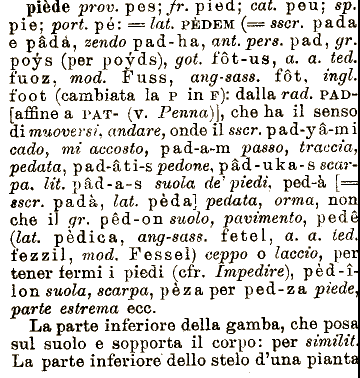 piède prov. pes; fr. pied; cat. peu; sp.
pie; port. pé: = lat. PÈDEM (= sscr. pada
e pâdâ, zendo pad-ha, ant. pers. pad, gr.
poýs (per poýds), got. fôt-us, a. a. ted.
fuoz, mod. Fuss, ang-sass. fôt, ingl.
foot (cambiata la P in F): dalla rad. PAD-
[affine a PAT- (v. Penna)], che ha il senso
di muoversi, andare, onde il sscr. pad-yâ-mi
cado, mi accosto, pad-a-m passo, traccia,
pedata, pad-âti-s pedone, pâd-uka-s scar-
pa. lit. pâd-a-s suola de' piedi, ped-à [=
sscr. padà, lat. pèda] pedata, orma, non
che il gr. pêd-on suolo, pavimento, pedê
(lat. pèdica, ang-sass. fetel, a. a. ted.
fezzil, mod. Fessel) ceppo o laccio, per
tener fermi i piedi (cfr. Impedire), pèd-i-
lon suola, scarpa, pèza per ped-za piede,
parte estrema ecc.
La parte inferiore della gamba, che posa
sul suolo e sopporta il corpo: per similit.
La parte inferiore dello stelo d'una pianta